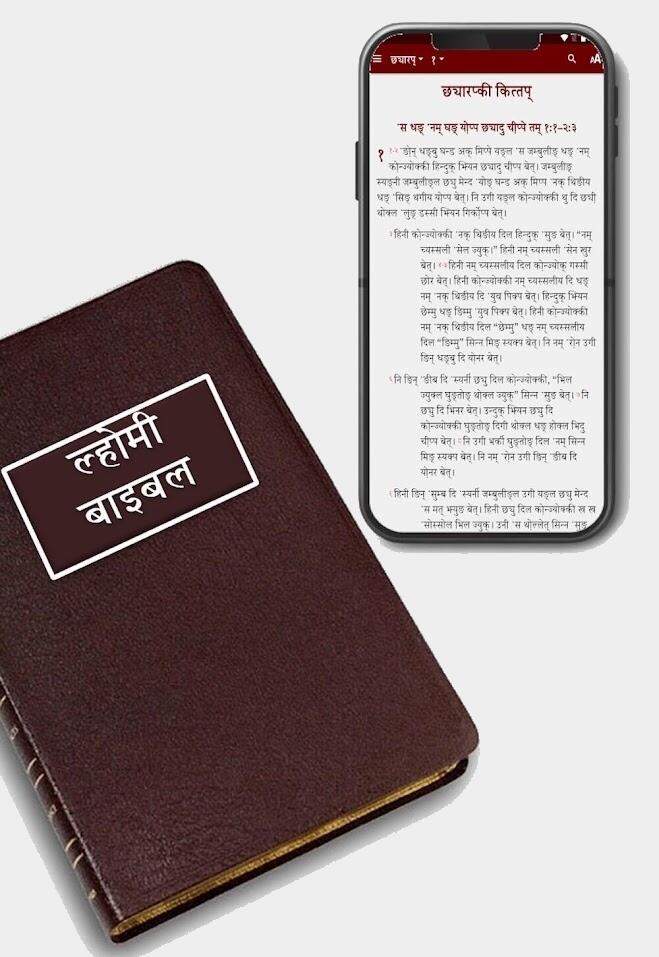 ल्होमी
बाइबल
छ्यारप् १
छ्यारप्की कित्तप्
ˈस धङ् ˈनम् घङ् योप्प छ्यादु चीप्पे तम् १:१–२:३
१ १-२ ˈङोन् धङ्बु घन्ड अक् मिप्पे यङ्ल ˈस जम्बुलीङ् धङ् ˈनम्
कोन्ज्योक्की हिन्दुक् भियन छ्यादु चीप्प बेत्। जम्बुलीङ्
स्यङ्नी जम्बुलीङ्ल छ्यु मेन्द ˈयोङ् घन्ड अक् मिप्प ˈनक् थिङीय
धङ् ˈसिङ् थगीय योप्प बेत्। नि उगी यङ्ल कोन्ज्योक्की थु दि छ्यी
थोक्ल ˈलुङ् डस्सी भियन गिर्कोप्प बेत्।
३ हिनी कोन्ज्योक्की ˈनक् थिङीय दिल हिन्दुक् ˈसुङ बेत्। “नम्
च्यस्सली ˈसेल ज्युक्।” हिनी नम् च्यस्सलीय ˈसेन खुर
बेत्। ४-५ हिनी नम् च्यस्सलीय दिल कोन्ज्योक् गस्सी
छोर बेत्। हिनी कोन्ज्योक्की नम् च्यस्सलीय दि धङ्
नम् ˈनक् थिङीय दि ˈयुव पिक्प बेत्। हिन्दुक् भियन
छेम्मु धङ् ङिम्मु ˈयुव पिक्प बेत्। हिनी कोन्ज्योक्की
नम् ˈनक् थिङीय दिल “छेम्मु” धङ् नम् च्यस्सलीय
दिल “ङिम्मु” सिन्न मिङ् स्यक्प बेत्। नि नम् ˈरोन उगी
ङिन् धङ्बु दि योनर बेत्।
६ नि ङिन् ˈङीब दि ˈस्यर्नी छ्यु दिल कोन्ज्योक्की, “भिल
ज्युक्ल घुङ्तोङ् थोक्ल ज्युक्” सिन्न ˈसुङ् बेत्। ७ नि
छ्यु दि भिनर बेत्। उन्दुक् भियन छ्यु दि
कोन्ज्योक्की घुङ्तोङ् दिगी थोक्ल धङ् होक्ल भिदु
चीप्प बेत्। ८ नि उगी भर्की घुङ्तोङ् दिल ˈनम् सिन्न
मिङ् स्यक्प बेत्। नि नम् ˈरोन उगी ङिन् ˈङीब दि
योनर बेत्।
९ हिनी ङिन् ˈसुम्ब दि ˈस्यर्नी जम्बुलीङ्ल उगी यङ्ल छ्यु मेन्द
ˈस मत् भ्युङ बेत्। हिनी छ्यु दिल कोन्ज्योक्की ख ख
ˈसोस्सोल भिल ज्युक्। उनी ˈस थोल्लेत् सिन्न ˈसुङ्